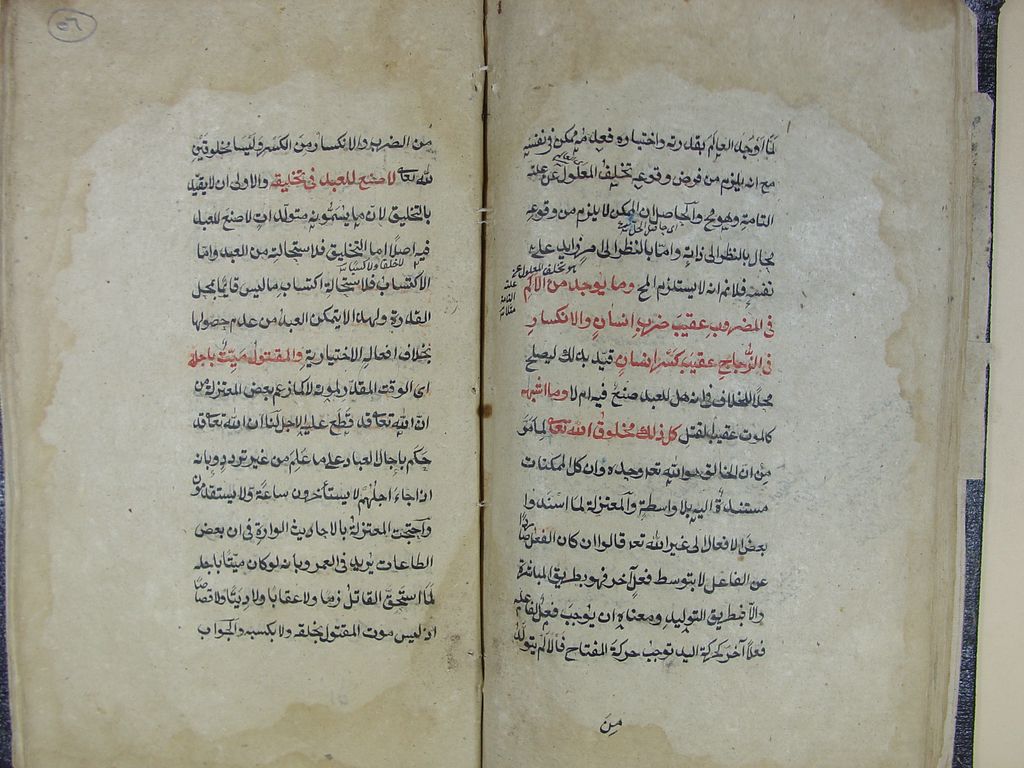 لما اوجد العالم بقدرته واختياره فعدمه ممكن في نفسه
مع انه يلزم من فرض وقوعه تخلف المعلول عن علته
التامة وهو مح والحاصل ان الممكن لا يلزم من وقوعه
محال بالنظر الى ذاته واما بالنظر الى امر زايد على
نفسه فلانم انه لا يستلزم المح وما يوجد من الالم
في المضروب عقيب ضرب انسان والانكسار
في الزجاج عقيب كسر انسان قيد بذلك ليصلح
محلا للخلاف في انه هل للعبد صنع فيه ام لا وما اشبهه
كالموت عقيب القتل كل ذلك مخلوق الله تعالى لما مر
من ان الخالق هو الله تعا وحده وان كل الممكنات
مستندة اليه بلا واسطة والمعتزلة لما اسندوا
بعض الافعال الى غير الله تعا قالوا ان كان الفعل صادرا
عن الفاعل لا بتوسط فعل آخر فهو بطريق المباشرة
والا فبطريق التوليد ومعناه ان يوجب فعل لفاعله
فعلا آخر كحركة اليد توجب حركة المفتاح فالالم يتولد
من
٥٦
من الضرب والانكسار من الكسر وليسا مخلوقين
لله تعالى لا صنع للعبد في تخليقه والاولى ان لا يقيد
بالتخليق لان ما يسمونه متولدات لا صنع للعبد
فيه اصلا اما التخليق فلاستحالته من العبد واما
لا خلقا ولا كسبا
الاكتساب فلاستحالة اكتساب ما ليس قايما بمحل
القدرة ولهذا لا يتمكن العبد من عدم حصولها
بخلاف افعاله الاختيارية والمقتول ميت باجله
اى الوقت المقدر لموته لا كما زعم بعض المعتزلة من
ان الله تعالى قد قطع عليه الاجل لنا ان الله تعالى قد
حكم باجال العباد على ما علم من غير تردد وبانه
اذا جاء اجلهم لا يستأخرون ساعة ولا يستقدمون
واحتجت المعتزلة بالاحاديث الواردة في ان بعض
الطاعات يزيد في العمر وبانه لو كان ميتا باجله
لما استحق القاتل ذما ولا عقابا ولا دية ولا قصاصا
اذ ليس موت المقتول بخلقه ولا بكسبه والجواب